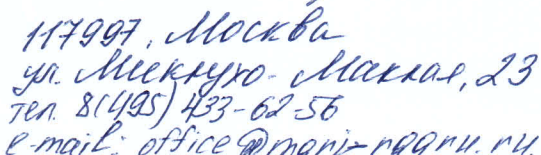 117997, Москва
ул. Миклухо-Маклая, 23
тел. 8(495) 433-62-56
e-mail: office@mgri-rggru.ru